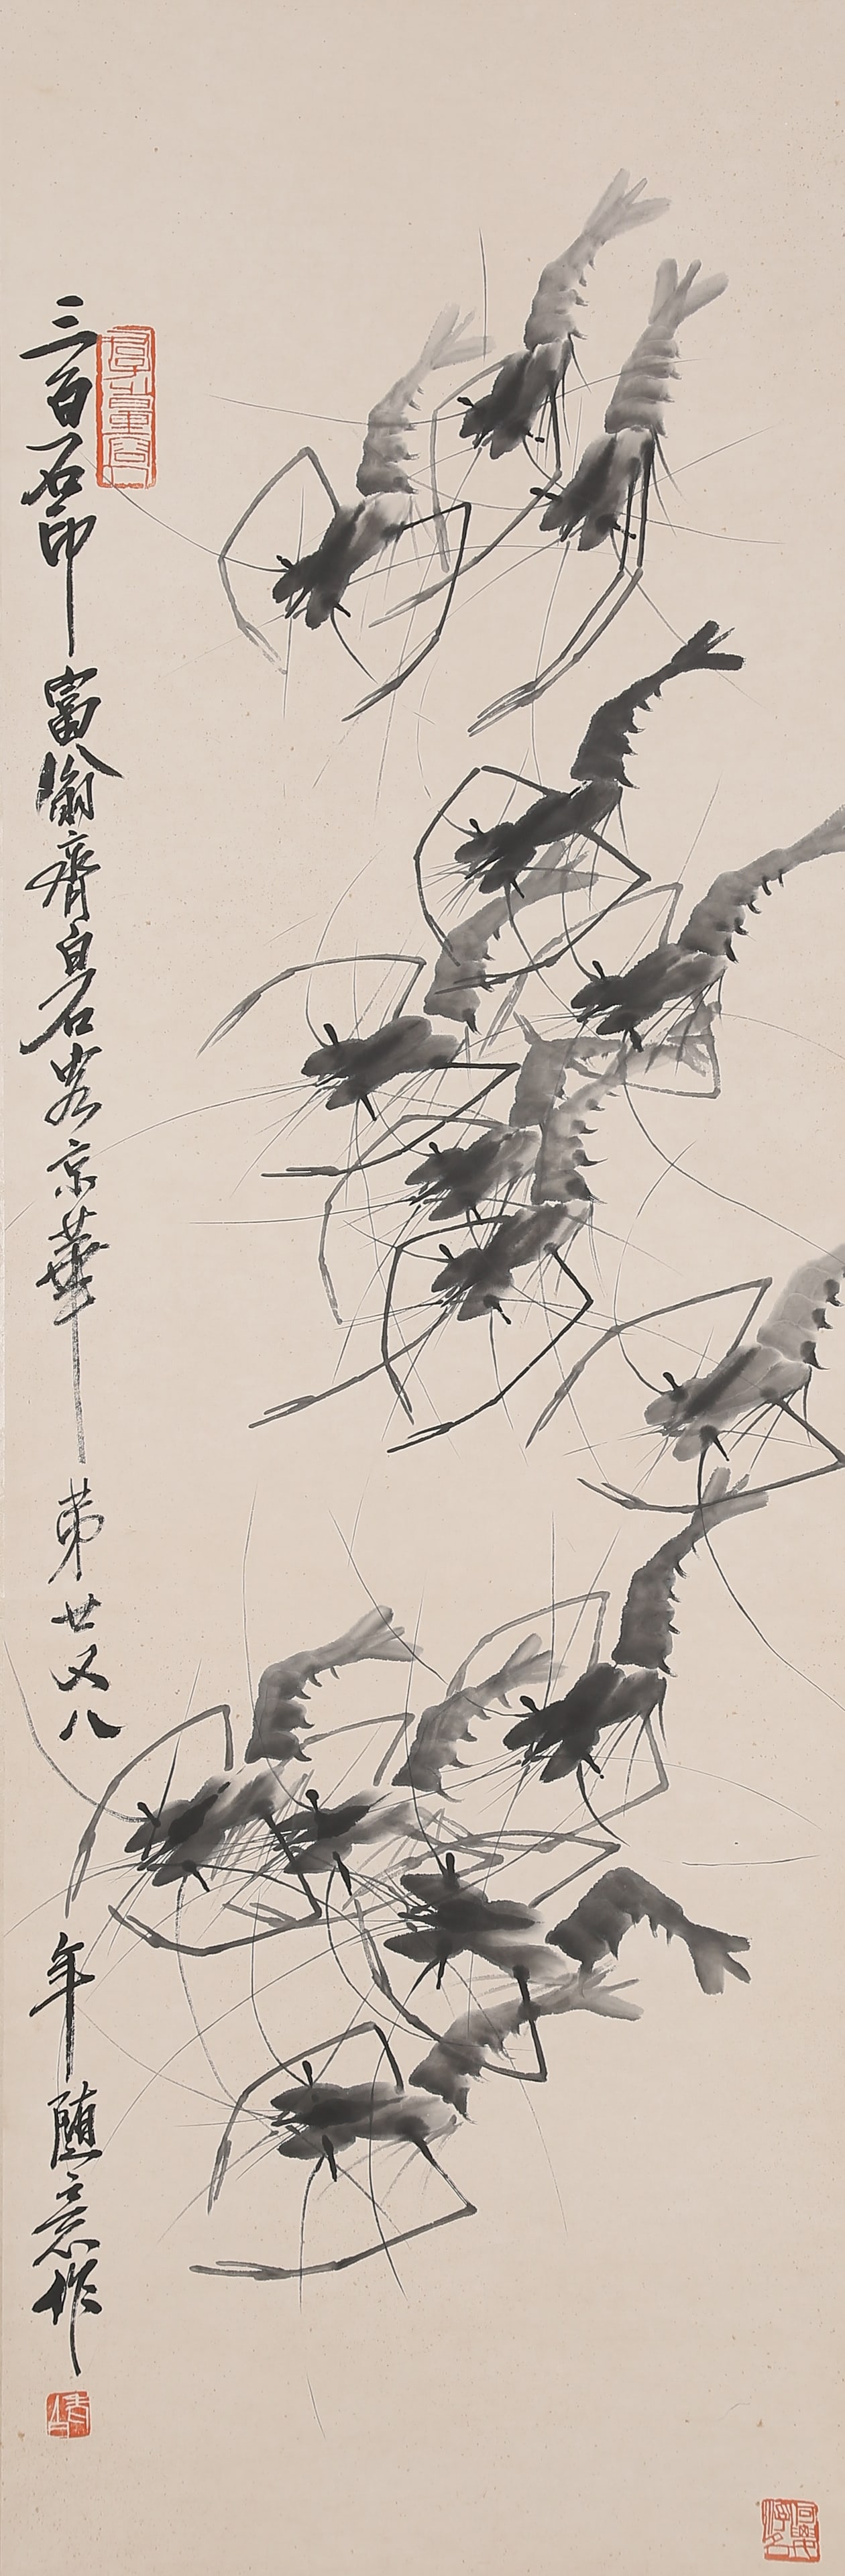 三百石印富翁齊白石客京華第廿又八年隨意作